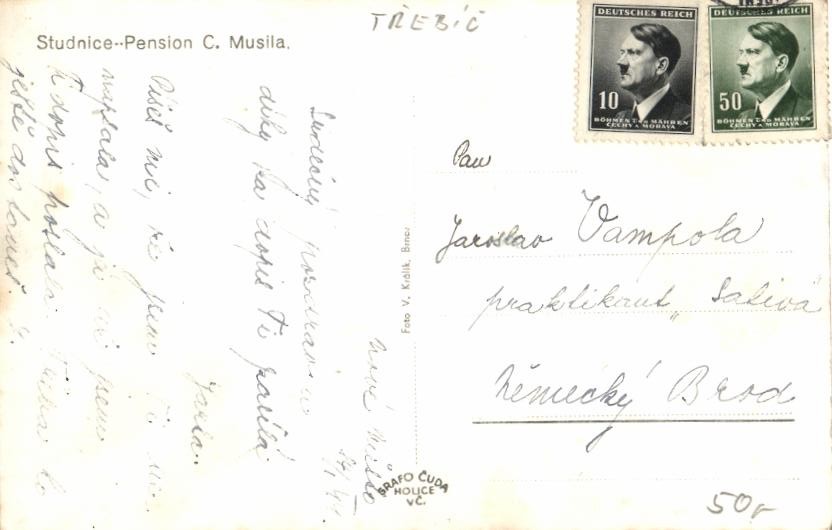 TŘEBÍČ
Studnice--Pension C. Musila.
DEUTSCHES REICH
10
BÖHMEN UND MÄHREN
ČECHY A MORAVA
DEUTSCHES REICH
50
BÖHMEN UND MÄHREN
ČECHY A MORAVA
Nové Město
Srdečný pozdrav a
díky za dopis Ti posílá
Jarka.
Píšeš mi, že jsem Ti
napsala, a já jsem
Ti dopis poslala.
ještě dostaneš. J.
Foto V. Králík, Brno.
GRAFO ČUDA
HOLICE
VČ.
Pan
Jaroslav Vampola
praktikant „Sativa
Německý Brod
50,-